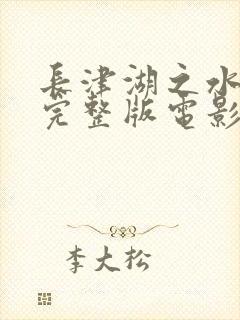 長津湖之水
完整版電影
李大松